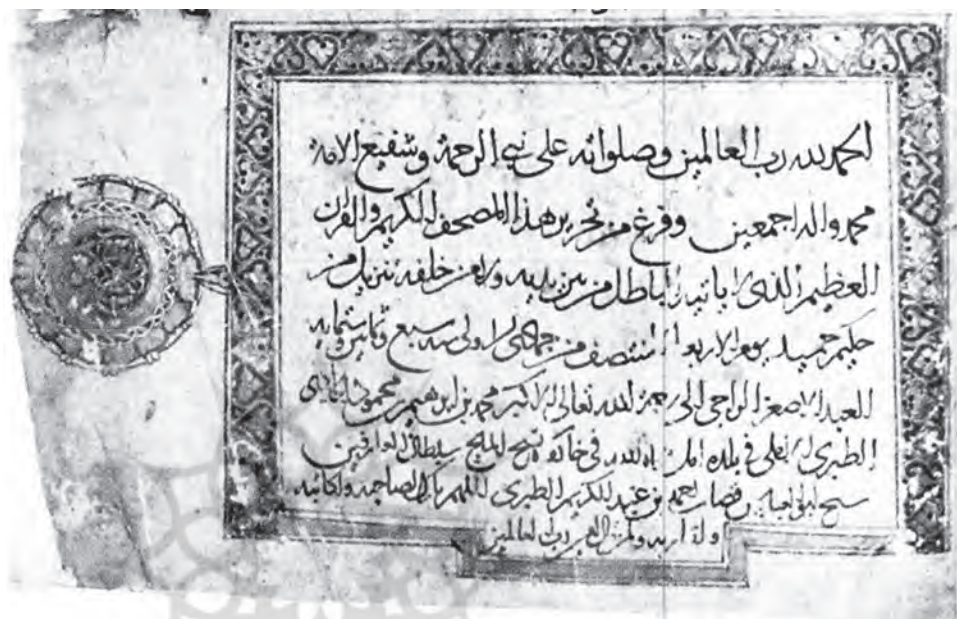 الحمد لله رب العالمين وصلواته على نبي الرحمة وشفيع الامة
محمد واله اجمعين وفرغ من تحرير هذا المصحف الكريم والقران
العظيم الذي لا ياتيه الباطل من بين يديه ولا من خلفه تنزيل من
حكيم حميد يوم الاربعا المنتصف من جمادى الاولى سنه سبع وثمانين وستمايه
العبد الاصغر الراجي الى رحمة الله تعالى الاكبر محمد بن ابرهيم بن محمود
الطبري في بلده امل في خانكاه الشيخ سلطان العارفين
شيخ ابو العباس قصاب احمد بن عبد الكريم الطبري اللهم بارك لصاحبه ولكاتبه
رب العالمين